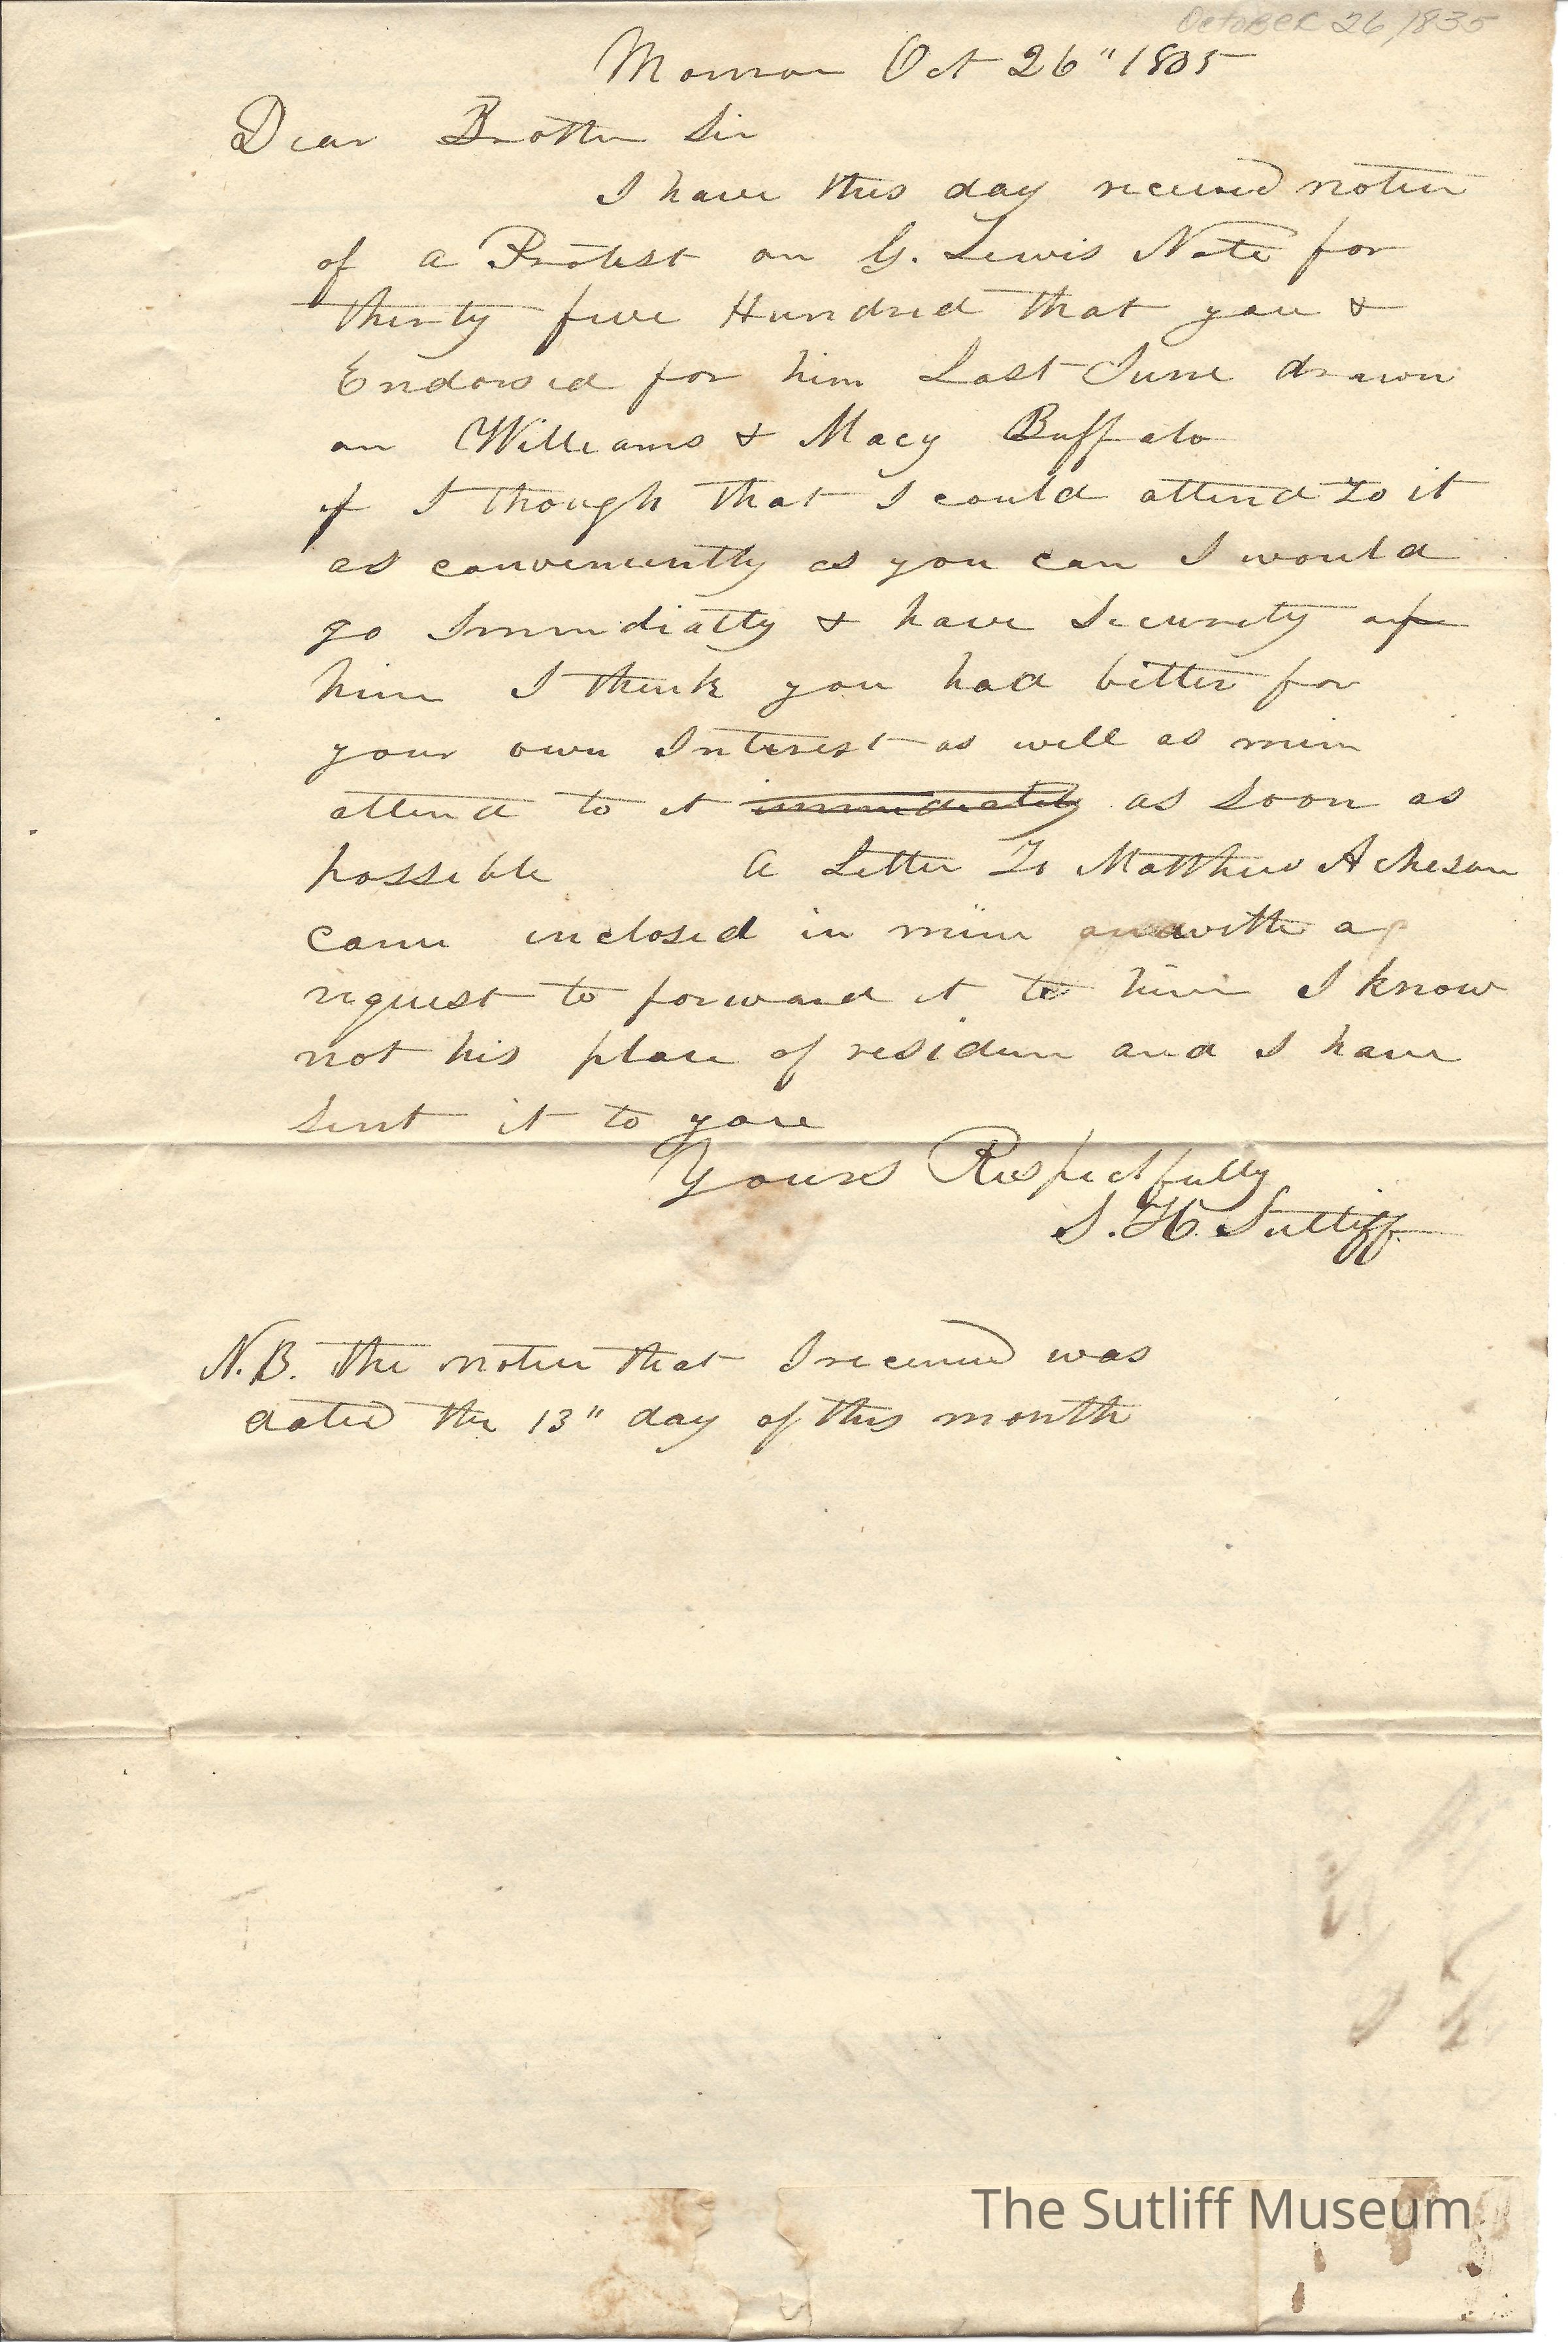 October 26, 1835
Monroe Oct 26" 1835
Dear Brother Sir
I have this day received notice
of a Protest on G. Lewis Note for
thirty five Hundred that you &
Endorsed for him Last June drawn
on Williams & Macy Buffalo
if I though that I could attend to it
as conveniently as you can I would
go Immidiatly & have Security of
him I think you had better for
your own Interest as well as mine
attend to it immidiately as soon as
possible A Letter To Matthew Acheson
came inclosed in mine with a
request to forward it to him I know
not his place of residence and I have
sent it to you
Yours Respectfully
S. H. Sutliff
N.B. the notice that I received was
dated the 13" day of this month
The Sutliff Museum